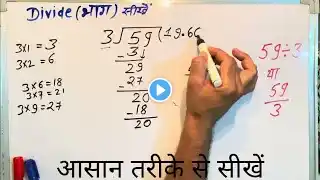 Divide (भाग) सीखें
3×1 = 3
3×2 = 6
3×6=18
3×7=21
3×9=27
3√59(19.66
-3↓
29
-27
20
-18
20
59÷3
या
59
3
आसान तरीके से सीखें